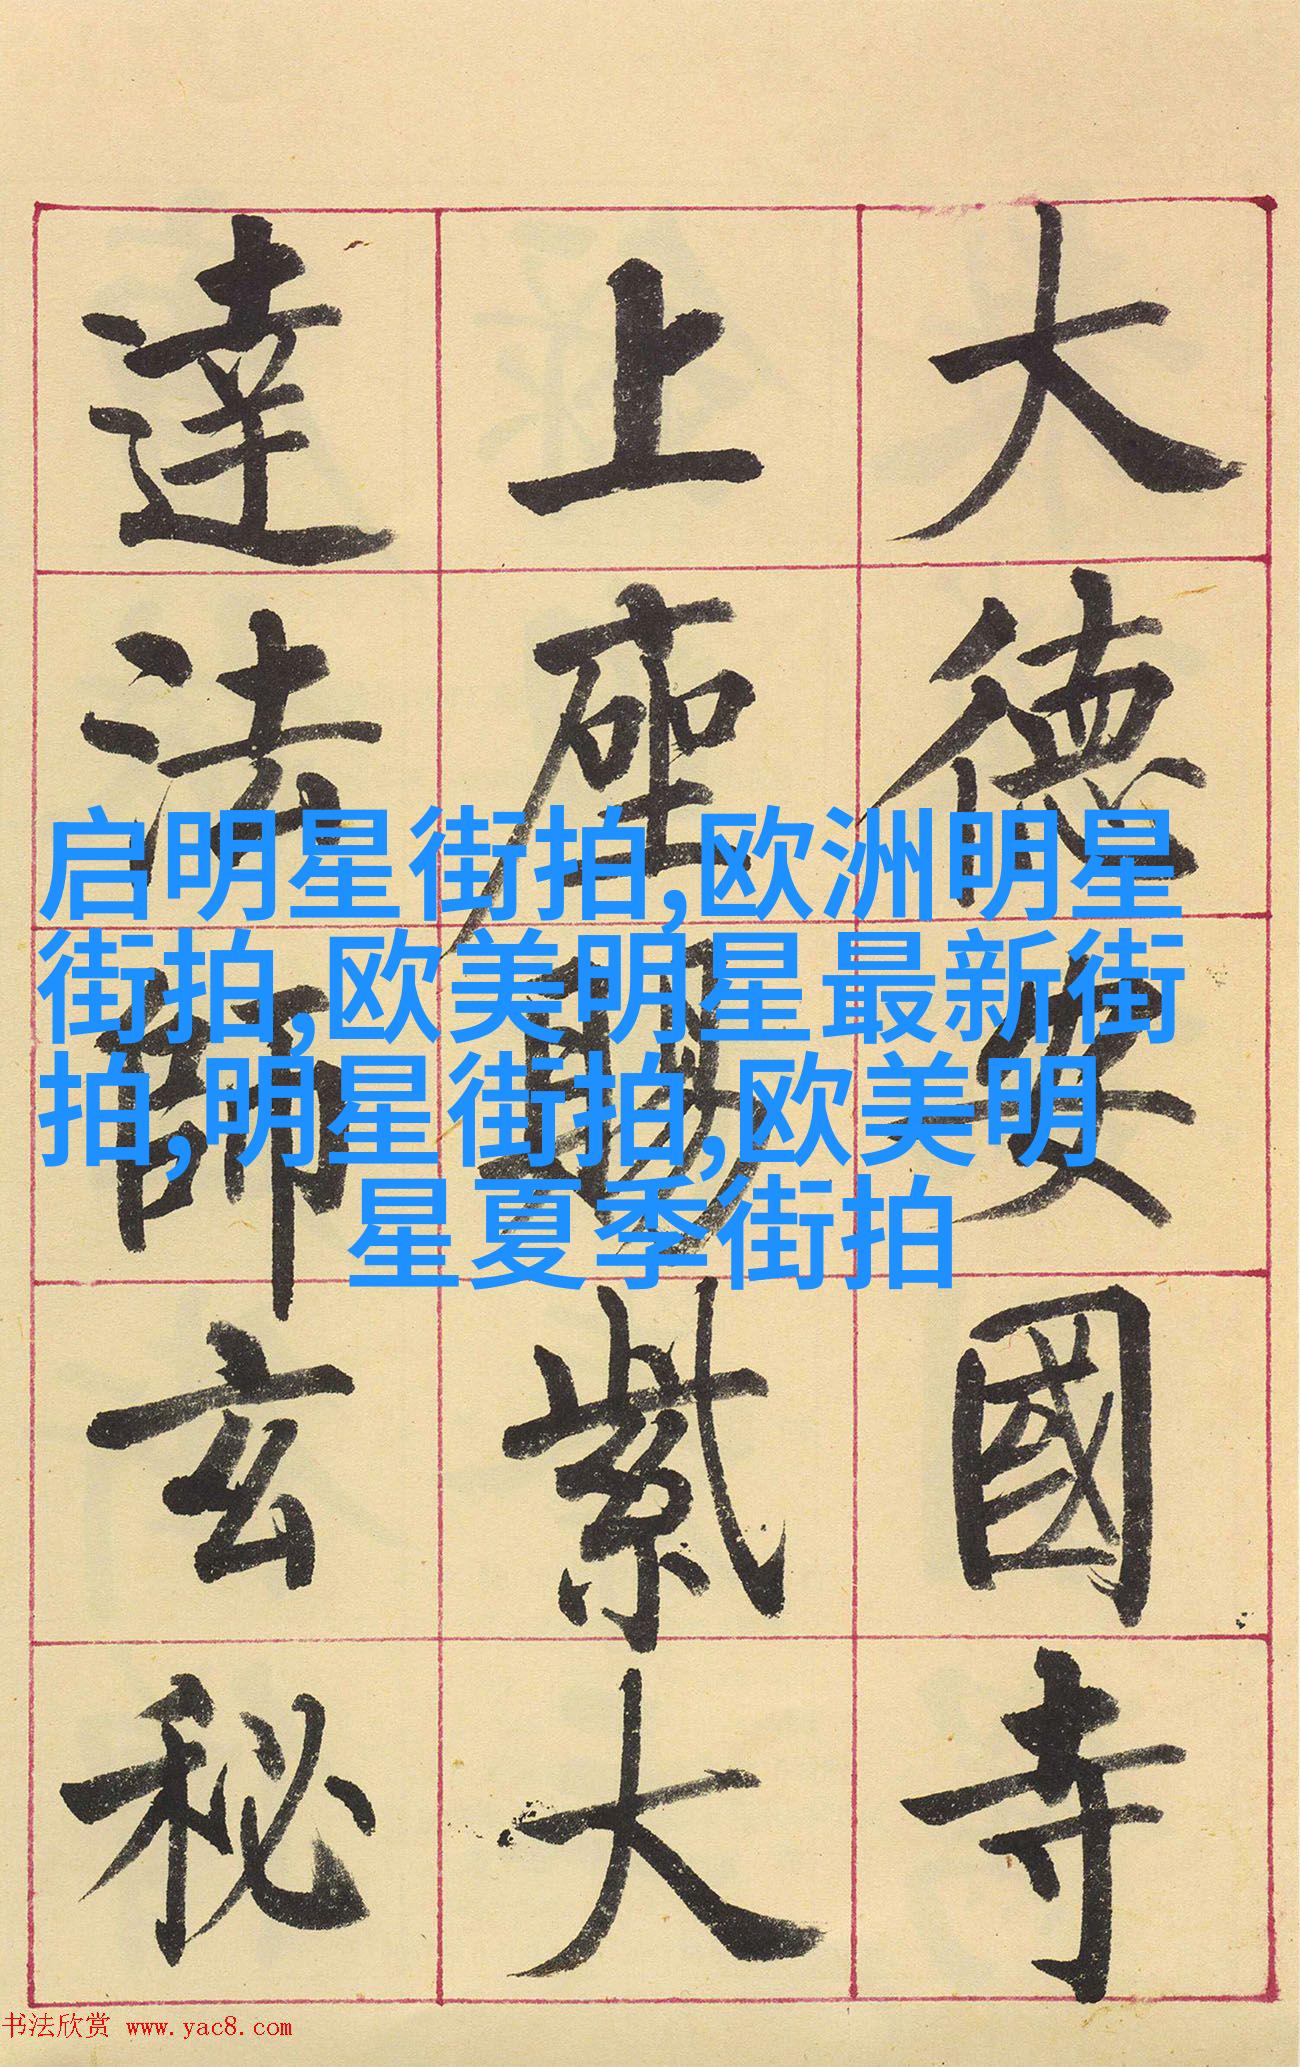 大德安國寺
上座賜紫大
達法師玄秘
启明星街拍,欧洲明星
街拍,欧美明星最新街
拍,明星街拍,欧美明
星夏季街拍
书法欣赏 www.yac8.com